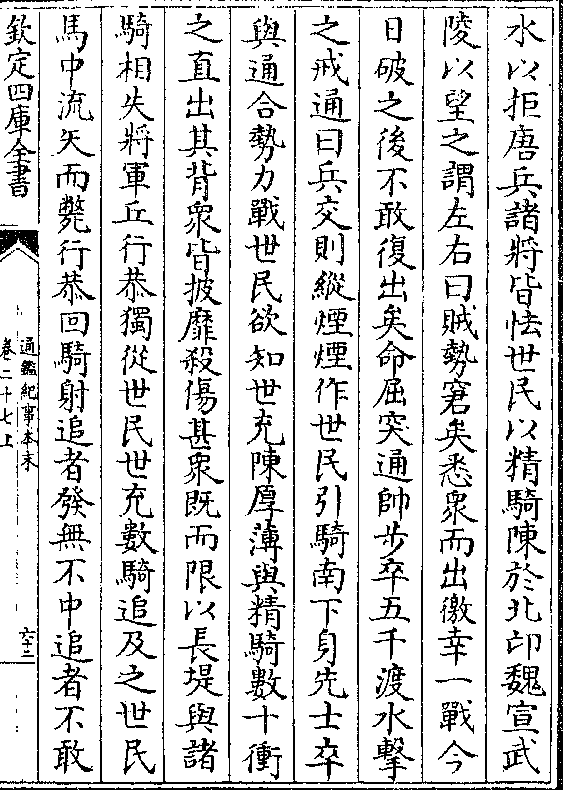 水以拒唐兵諸將皆怯世民以精騎陳於北邙魏宣武
陵以望之謂左右曰賊勢窘矣悉衆而出徼幸一戰今
日破之後不敢復出矣命屈突通帥步卒五千渡水擊
之戒通曰兵交則縱煙煙作世民引騎南下身先士卒
與通合勢力戰世民欲知世充陳厚薄與精騎數十衝
之直出其背衆皆披靡殺傷甚衆既而限以長堤與諸
騎相失將軍丘行恭獨從世民世充數騎追及之世民
馬中流矢而斃行恭回騎射追者發無不中追者不敢
欽定四庫全書
通鑑紀事本末
卷二十七上
六十二